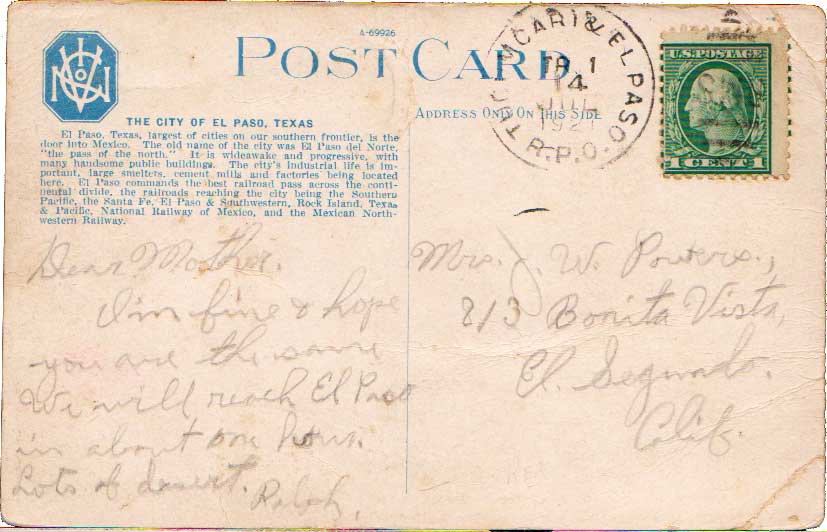 A-69926
POST CARD
ADDRESS ONLY ON THIS SIDE
THE CITY OF EL PASO, TEXAS
El Paso, Texas, largest of cities on our southern frontier, is the
door into Mexico. The old name of the city was El Paso del Norte,
"the pass of the north." It is wideawake and progressive, with
many handsome public buildings. The city's industrial life is im-
portant, large smelters, cement mills and factories being located
here. El Paso commands the best railroad pass across the conti-
nental divide, the railroads reaching the city being the Southern
Pacific, the Santa Fe, El Paso & Southwestern, Rock Island, Texas
& Pacific, National Railway of Mexico, and the Mexican North-
western Railway.
TUCUMCARI & EL PASO
TR. 1
14
JUL
1921
R.P.O.
U.S. POSTAGE
1 CENTS 1
Dear Mother.
I'm fine & hope
you are the same
We will reach El Paso
in about one hour.
Lots of desert.
Ralph.
Mrs. J. W. Powers.,
213 Bonita Vista,
El. Segundo.
Calif.